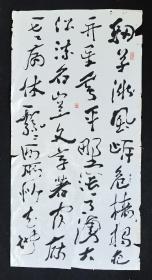 細草微風岸危檣獨夜
舟星垂平野闊月湧大
江流名豈文章著官應
老病休飄飄何所似天地